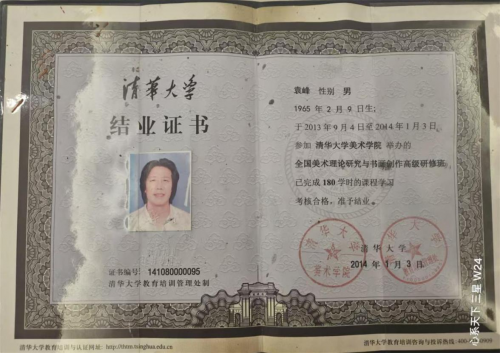 清华大学
结业证书
证书编号：141080000095
清华大学教育培训管理处制
袁峰 性别 男
1965 年 2 月 9 日生，
于 2013 年 9 月 4 日至 2014 年 1 月 3 日，
参加 清华大学美术学院 举办的
全国美术理论研究与书画创作高级研修班
已完成 180 学时的课程学习
考核合格，准予结业。
清华大学
2014 年 1 月 3 日
清华大学
美术学院
清华大学教育培训与认证网址：http://thtm.tsinghua.edu.cn
清华大学教育培训咨询与投诉热线：400
心系天下 三星 W24